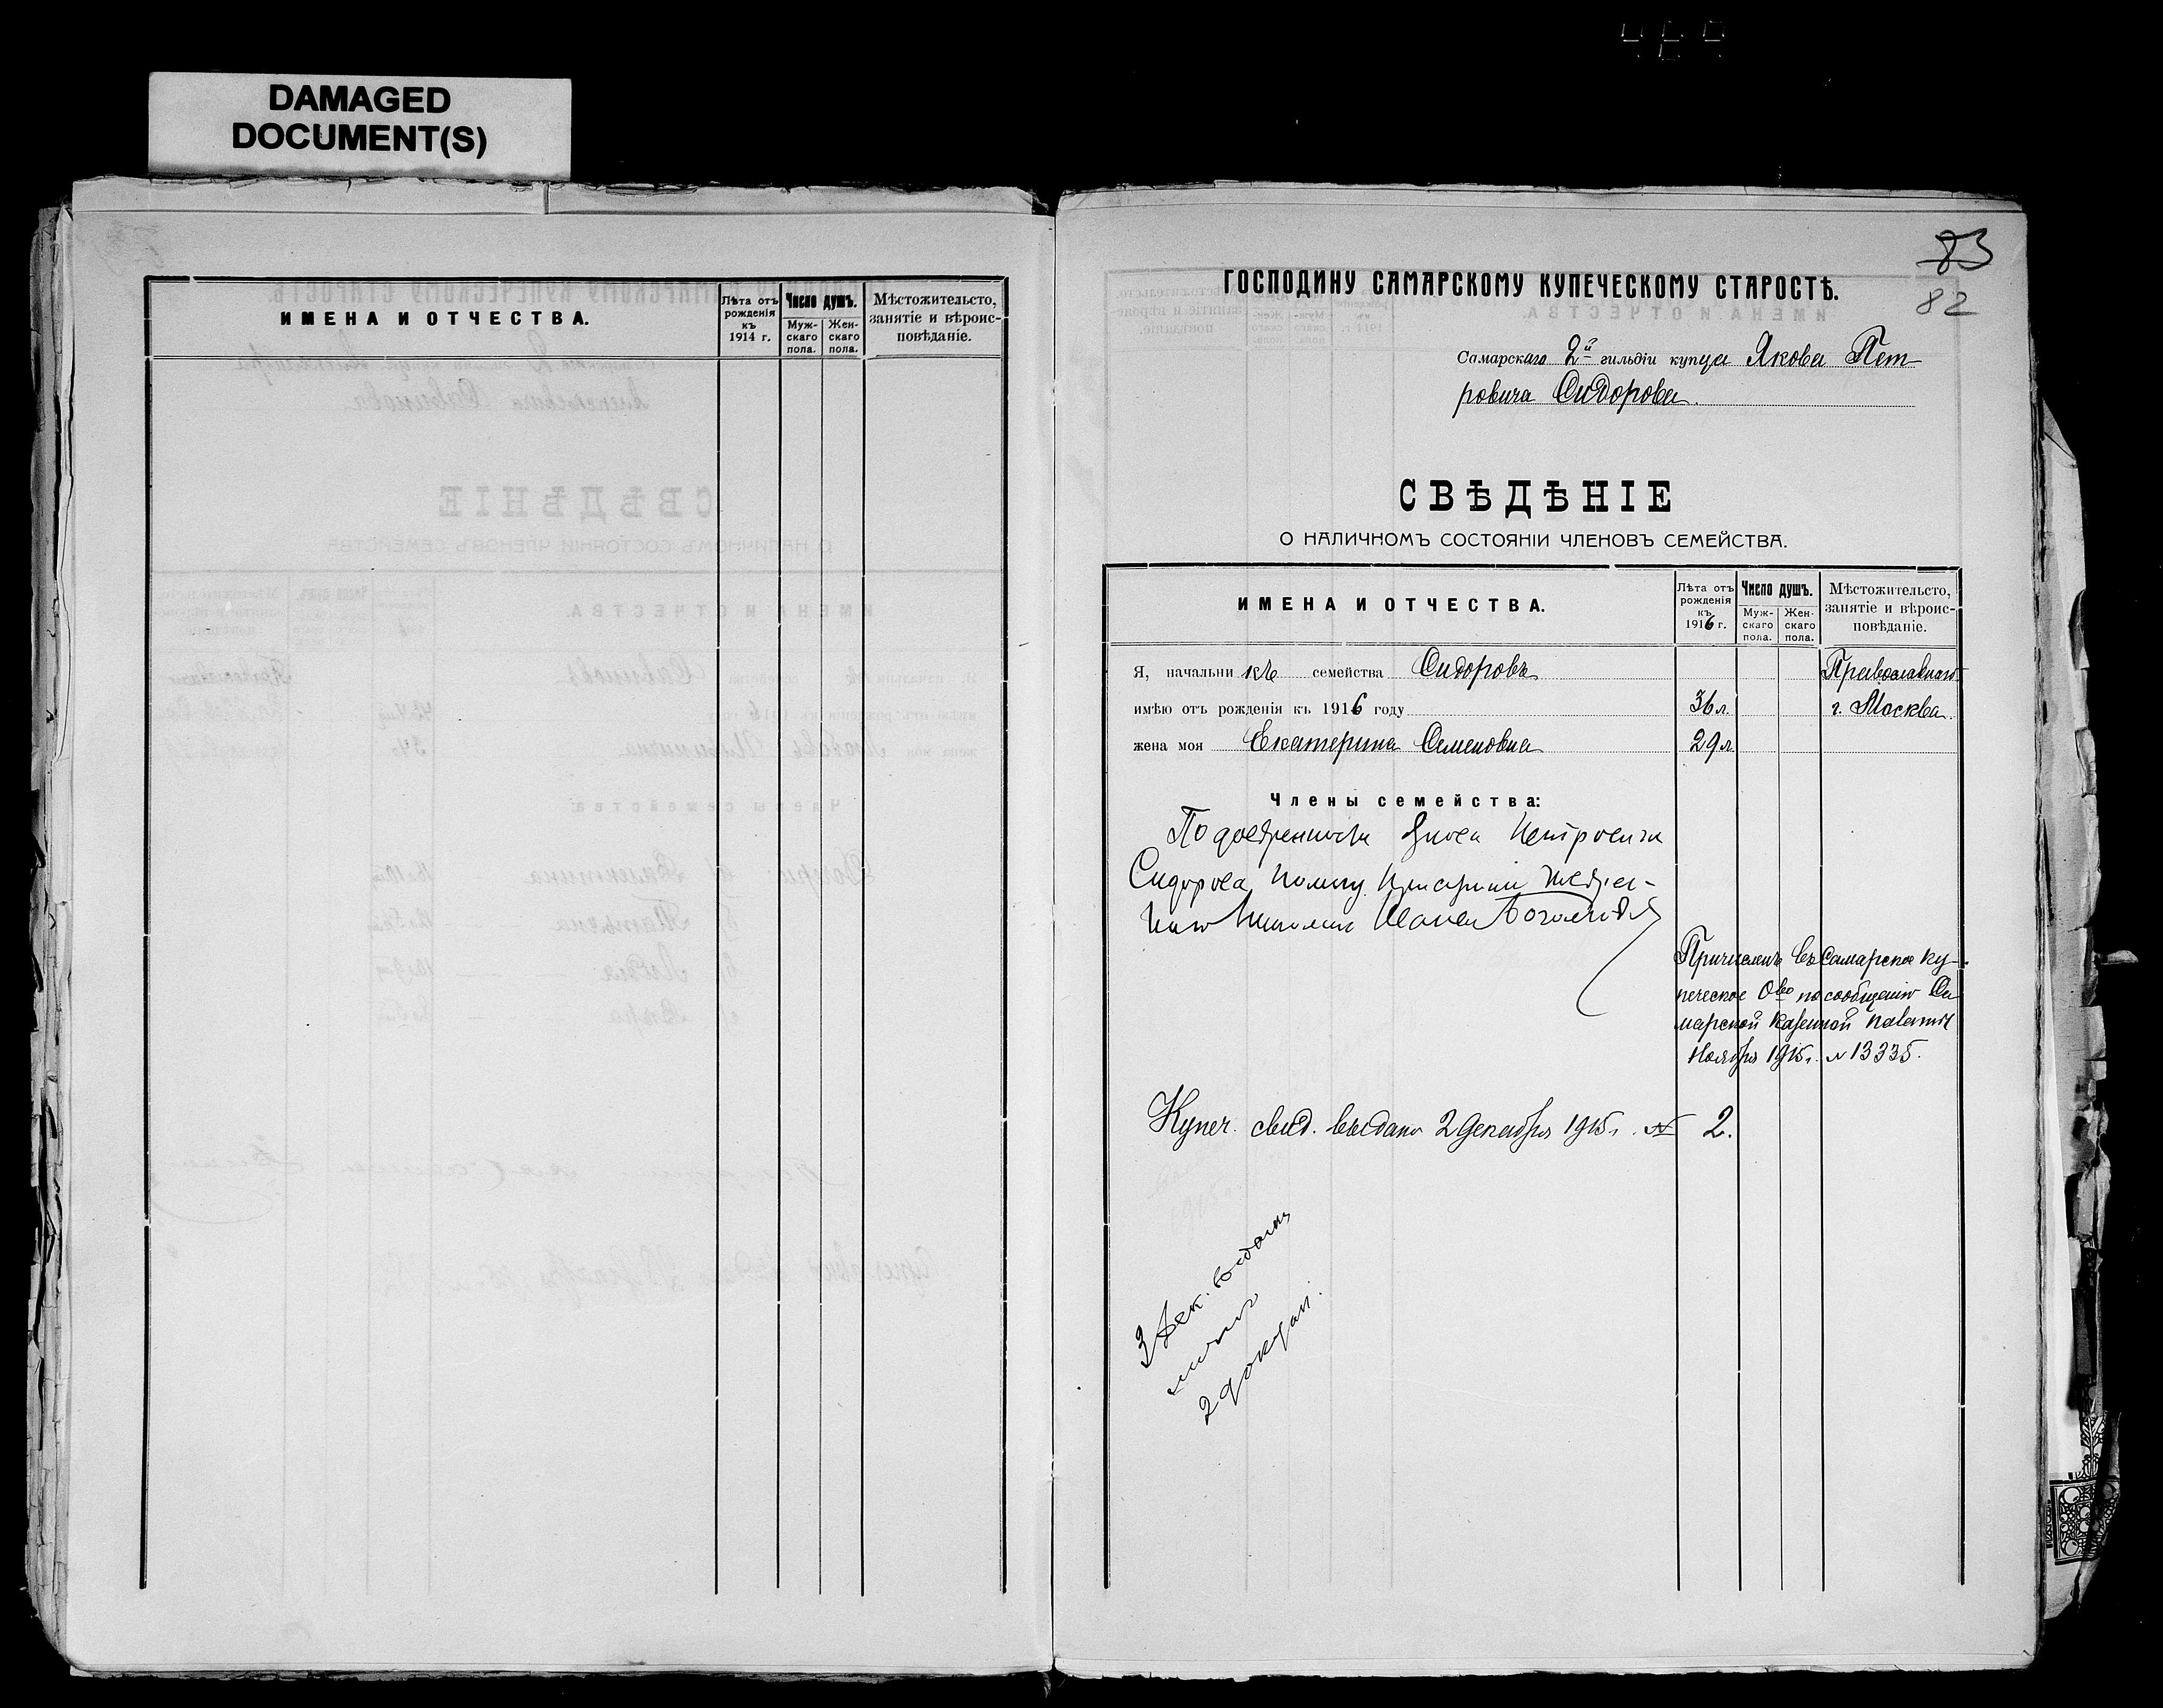 DAMAGED
DOCUMENT(S)
ИМЕНА И ОТЧЕСТВА.
Лѣта отъ рожденія къ 1914 г.
Число душъ.
Муж-скаго пола.
Жен-скаго пола.
Мѣстожительсто, занятіе и вѣроис-повѣданіе.
83
82
ГОСПОДИНУ САМАРСКОМУ КУПЕЧЕСКОМУ СТАРОСТѢ.
Самарскаго 2й гильдіи купца Якова Пет
ровича Сидорова
СВѢДѢНІЕ
О НАЛИЧНОМЪ СОСТОЯНІИ ЧЛЕНОВЪ СЕМЕЙСТВА.
ИМЕНА И ОТЧЕСТВА.
Лѣта отъ рожденія къ 1916 г.
Число душъ.
Муж-скаго пола.
Жен-скаго пола.
Мѣстожительсто, занятіе и вѣроис-повѣданіе.
Я, начальникъ семейства Сидоровъ Православнаго
имѣю отъ рожденія къ 1916 году 36 л. г. Москва.
жена моя Екатерина Семеновна 29 л.
Члены семейства:
По довѣренности Якова Петровича
Сидорова
Причисленъ въ Самарское ку-
печеское О-во по сообщенію Са
марской Казенной Палаты
Ноября 1915 г. № 13335.
Купеч. свид. выдано 2 декабря 1915 г. № 2.
3 Дек. выданы
2 докум.